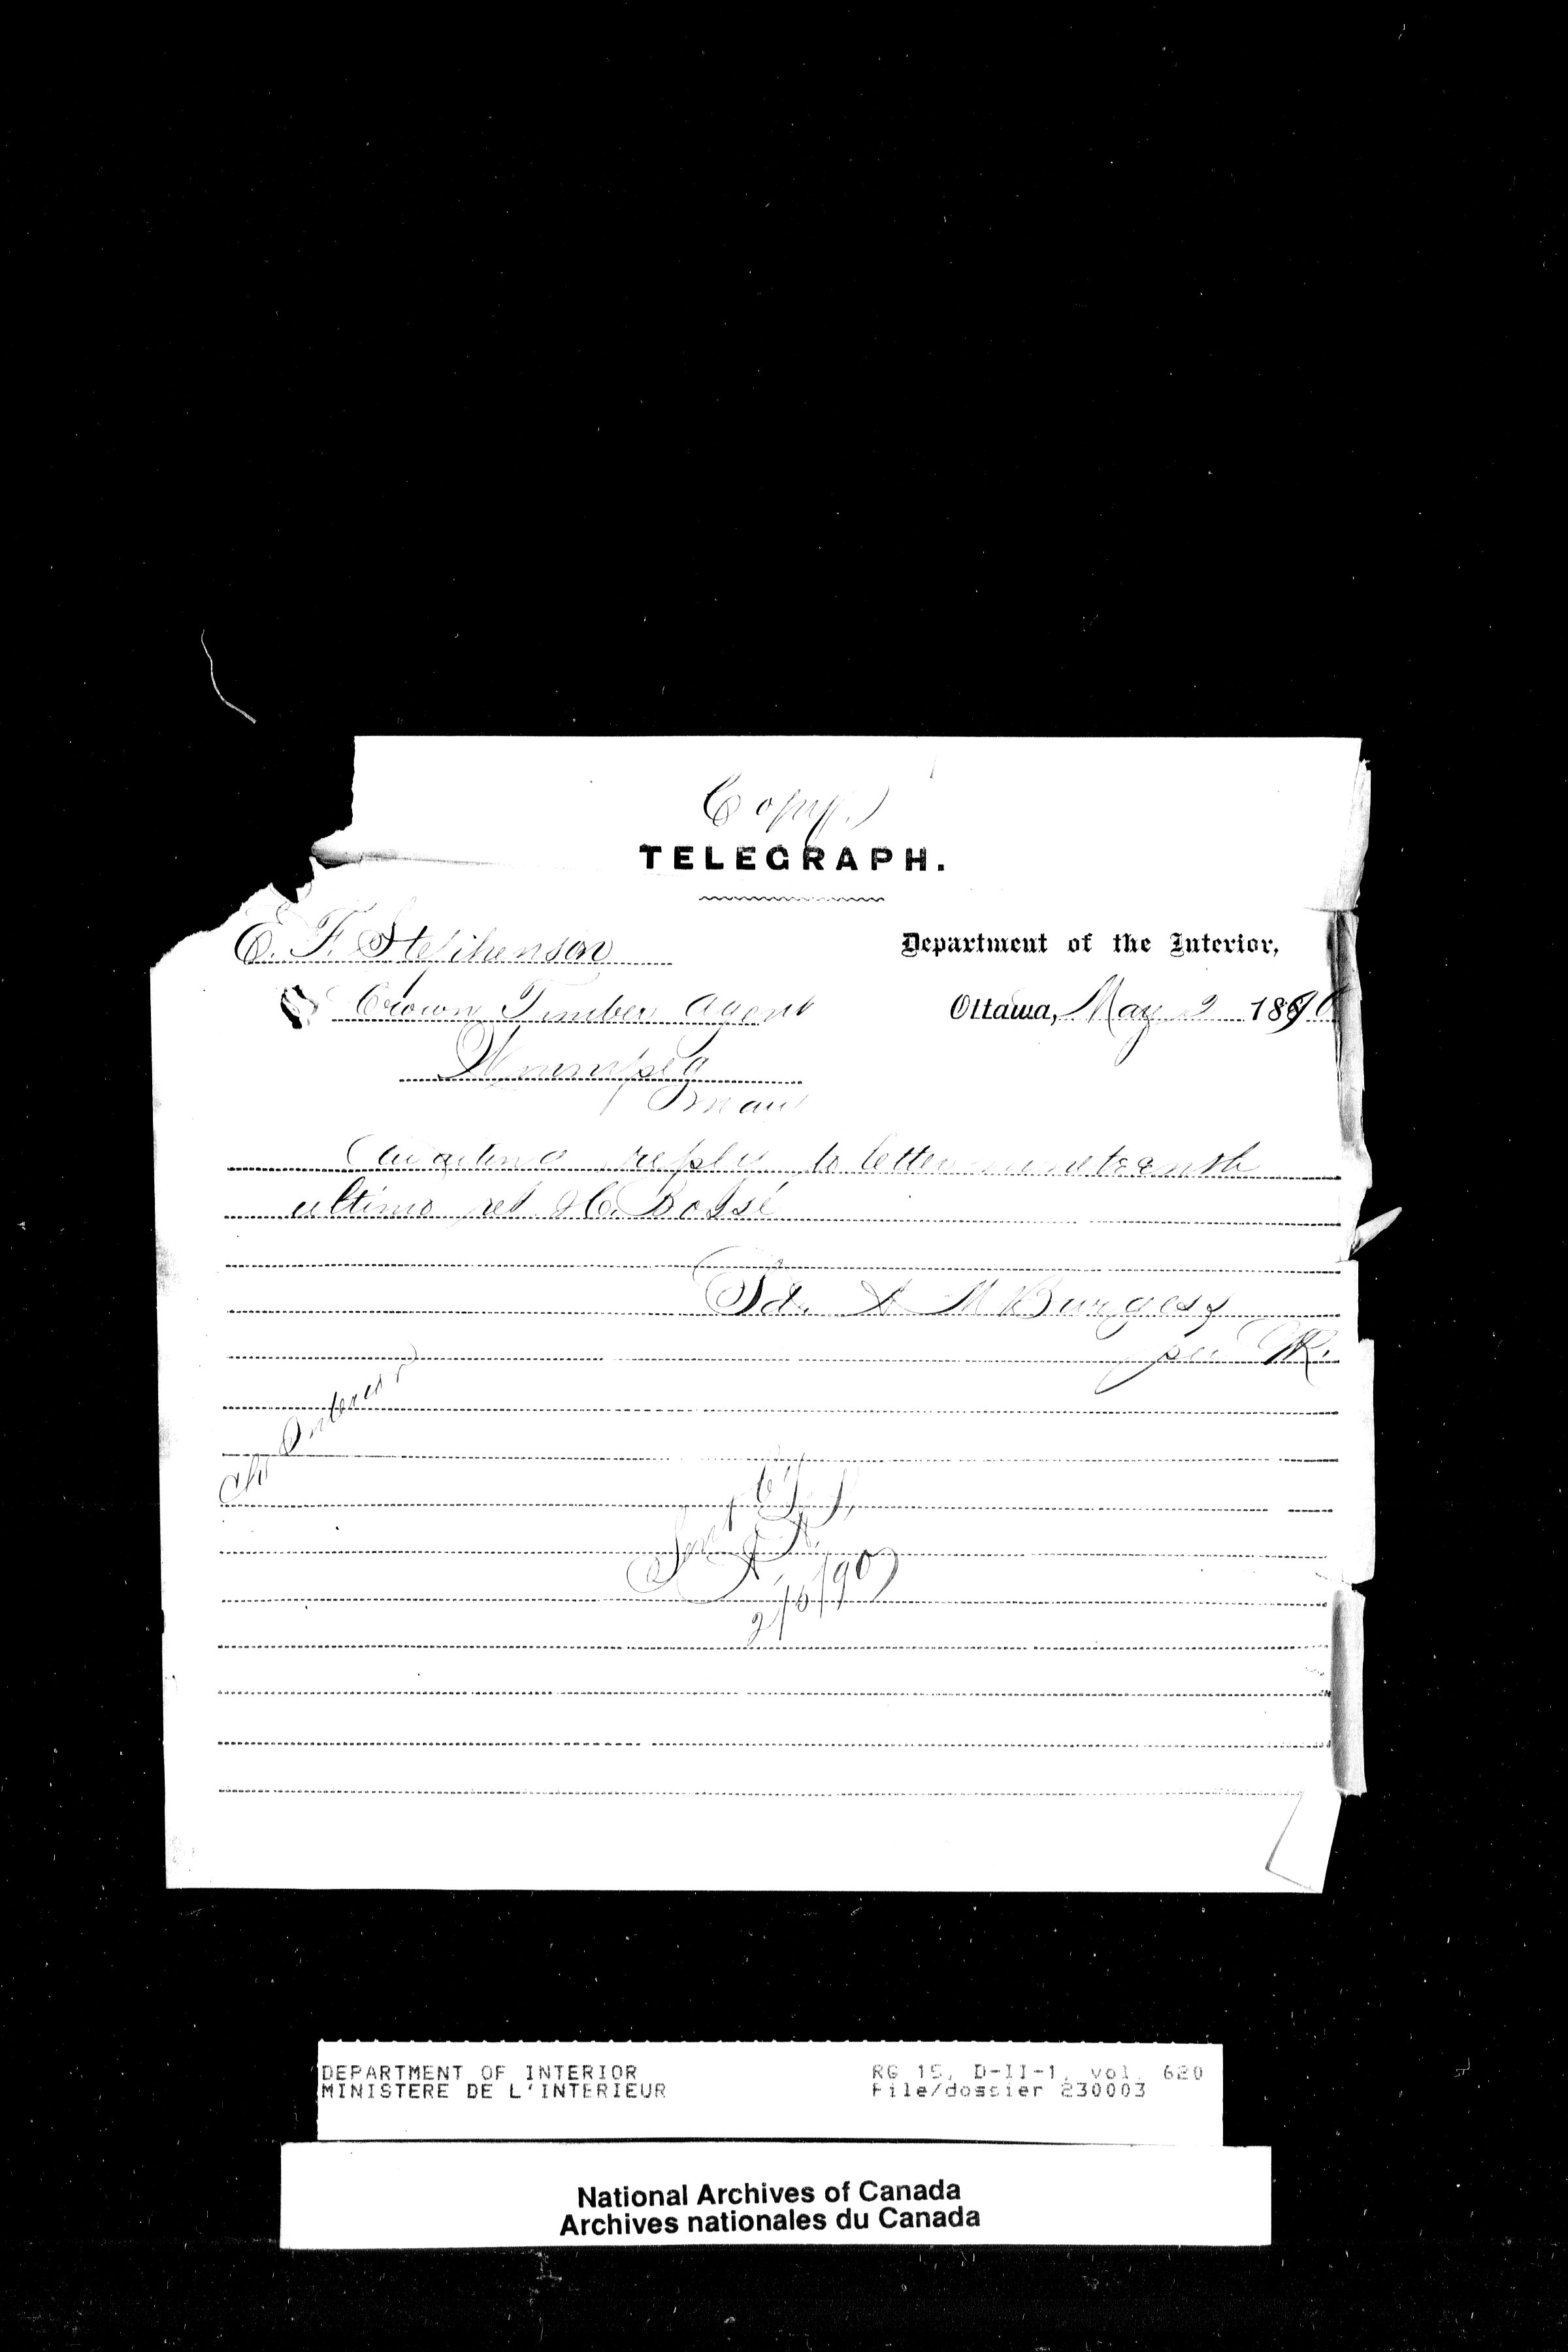 Copy.)
TELEGRAPH.
E. F. Stephenson
Department of the Interior,
Crown Timber Agent
Ottawa, May 2 1890
Winnipeg
Man
Awaiting reply to letter nineteenth
ultimo ret H. Bossé
Sd. A M Burgess
per R.
Chg Interior
Sent by
2/5/90
DEPARTMENT OF INTERIOR
MINISTERE DE L'INTERIEUR
RG 15, D-II-1, vol. 620
File/dossier 230003
National Archives of Canada
Archives nationales du Canada